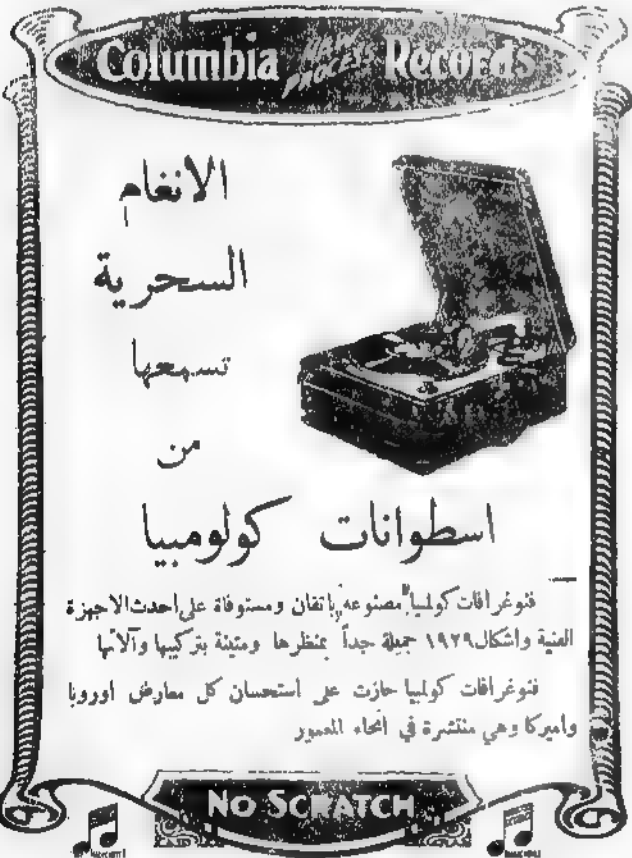 Columbia NEW PROCESS Records
الانغام
السحرية
تسمعها
من
اسطوانات كولومبيا
فنوغرافات كولمبيا مصنوعه باتقان ومستوفاة على احدث الاجهزة
الفنية واشكال ١٩٢٩ جميلة جداً بمنظرها ومتينة بتركيبها وآلاتها
فنوغرافات كولمبيا حازت على استحسان كل معارض اوروبا
واميركا وهي منتشرة في انحاء المعمور
NO SCRATCH